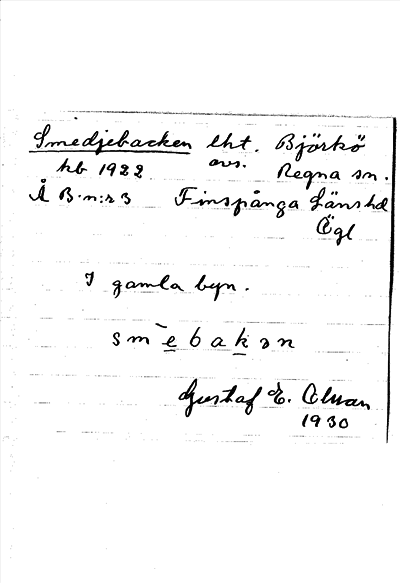 Smedjebacken lht. Björkö
hb 1922 avs. Regna sn.
Å B.n:r 3 Finspånga Länshd
Ögl
I gamla byn.
smēbakən
Gustaf E.
1930